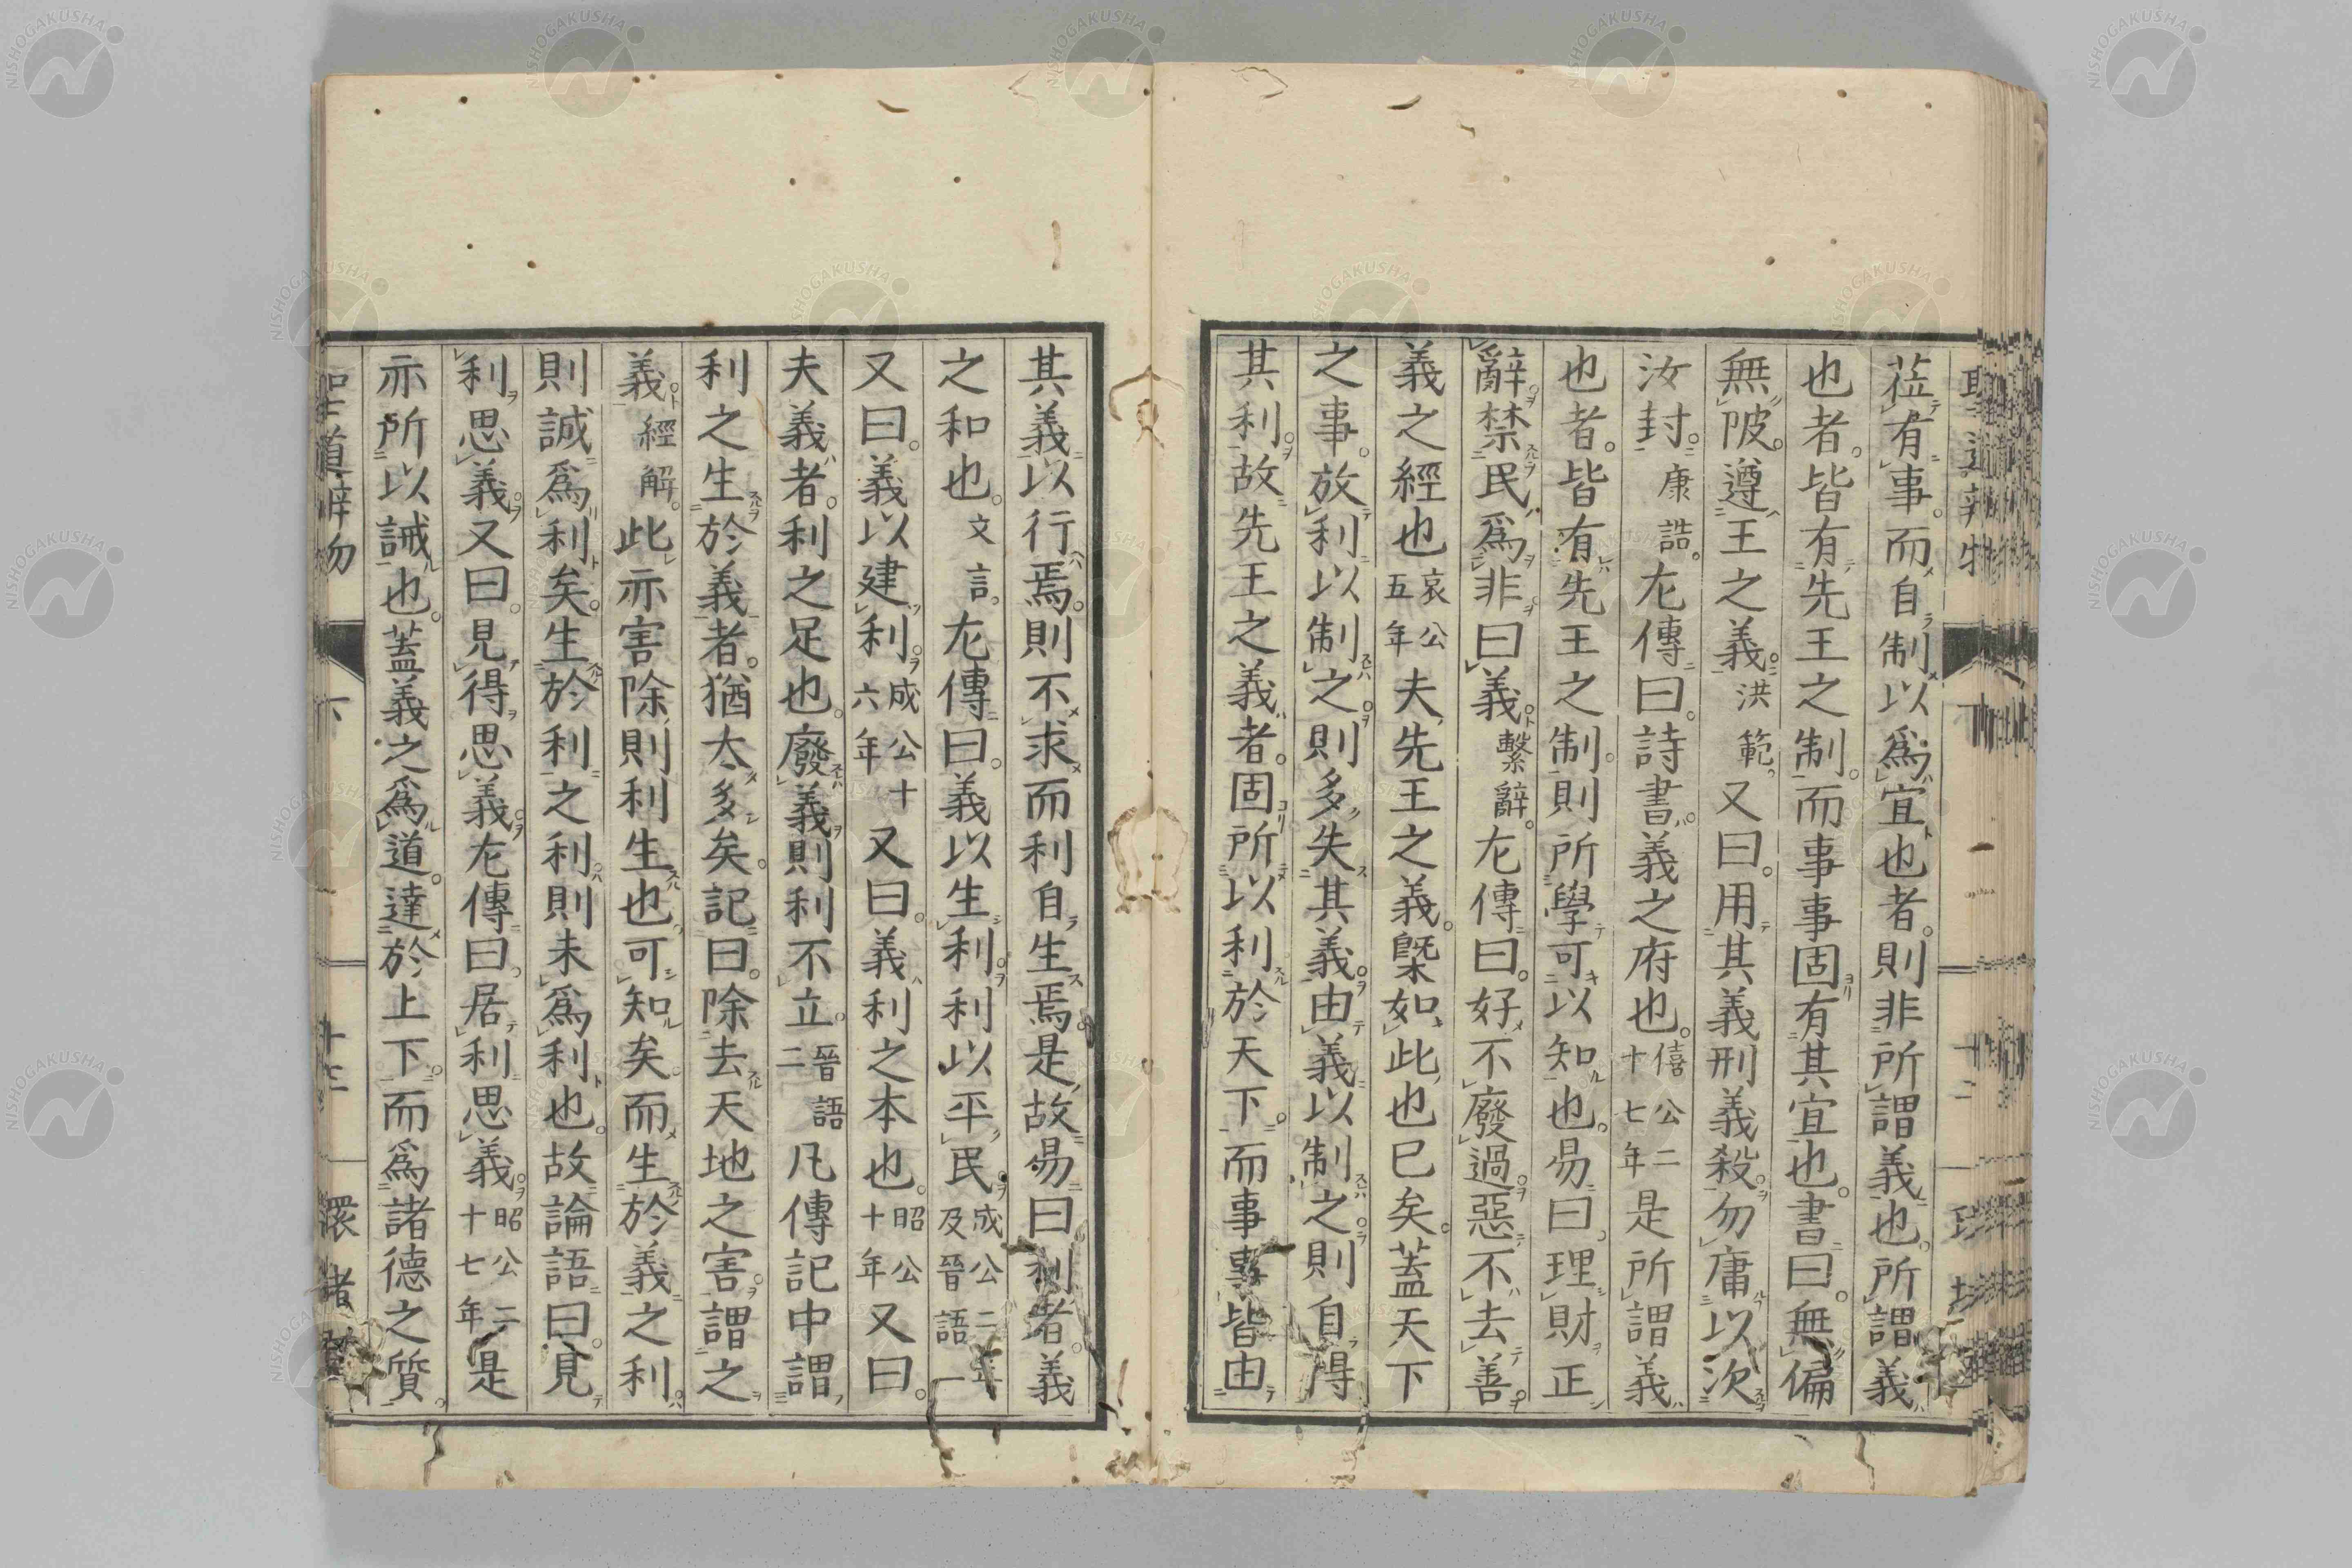 莅有事。而自制以爲宜也者。則非所謂義也。所謂義
也者。皆有先王之制。而事事固有其宜也。書曰。無偏
無陂。遵王之義。洪範。又曰。用其義刑義殺。勿庸以次
汝封。康誥。左傳曰。詩書。義之府也。僖公二十七年是所謂義
也者。皆有先王之制。則所學可以知也。易曰。理財正
辭。禁民爲非曰義。繫辭。左傳曰。好不廢過。惡不去善。
義之經也哀公五年夫先王之義。槩如此也已矣。蓋天下
之事。放利以制之。則多失其義。由義以制之。則自得
其利。故先王之義者。固所以利於天下。而事事皆由
其義以行焉。則不求而利自生焉。是故易曰。利者。義
之和也。文言。左傳曰。義以生利。利以平民。成公二年及晉語一
又曰。義以建利。成公十六年又曰。義利之本也。昭公十年又曰。
夫義者。利之足也。廢義則利不立。晉語二凡傳記中謂
利之生於義者。猶太多矣。記曰。除去天地之害。謂之
義。經解。此亦害除則利生也。可知矣。而生於義之利。
則誠爲利矣。生於利之利。則未爲利也。故論語曰。見
利思義。又曰。見得思義。左傳曰。居利思義。昭公二十七年是
亦所以誡也。蓋義之爲道。達於上下。而爲諸德之質。
聖道辨物 下 十三 環堵